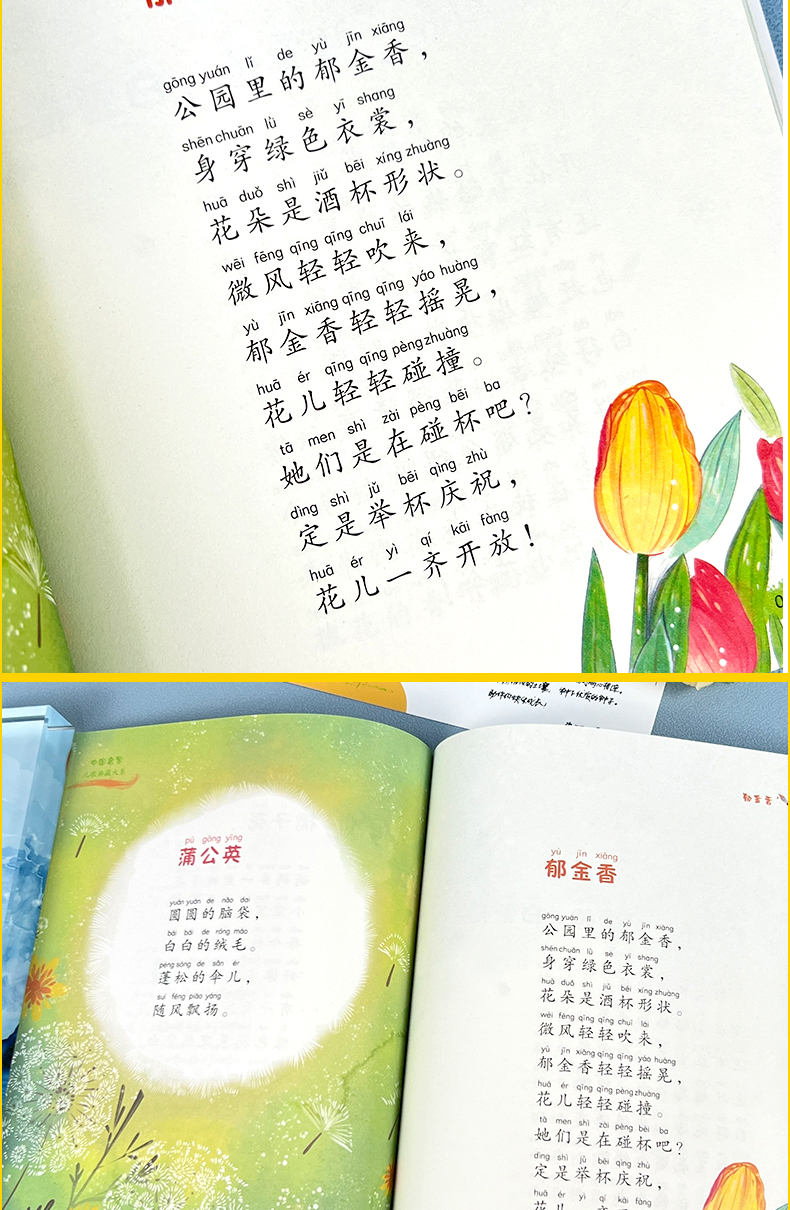 gōng yuán lǐ de yù jīn xiāng
公园里的郁金香，
shēn chuān lǜ sè yī shang
身穿绿色衣裳，
huā duǒ shì jiǔ bēi xíng zhuàng
花朵是酒杯形状。
wēi fēng qīng qīng chuī lái
微风轻轻吹来，
yù jīn xiāng qīng qīng yáo huàng
郁金香轻轻摇晃，
huā ér qīng qīng pèng zhuàng
花儿轻轻碰撞。
tā men shì zài pèng bēi ba
她们是在碰杯吧？
dìng shì jǔ bēi qìng zhù
定是举杯庆祝，
huā ér yì qí kāi fàng
花儿一齐开放！
pú gōng yīng
蒲公英
yuán yuán de nǎo dai
圆圆的脑袋，
bái bái de róng máo
白白的绒毛。
péng sōng de sǎn ér
蓬松的伞儿，
suí fēng piāo yáng
随风飘扬。
郁金香
yù jīn xiāng
郁金香
gōng yuán lǐ de yù jīn xiāng
公园里的郁金香，
shēn chuān lǜ sè yī shang
身穿绿色衣裳，
huā duǒ shì jiǔ bēi xíng zhuàng
花朵是酒杯形状。
wēi fēng qīng qīng chuī lái
微风轻轻吹来，
yù jīn xiāng qīng qīng yáo huàng
郁金香轻轻摇晃，
huā ér qīng qīng pèng zhuàng
花儿轻轻碰撞。
tā men shì zài pèng bēi ba
她们是在碰杯吧？
dìng shì jǔ bēi qìng zhù
定是举杯庆祝，
huā ér yì qí kāi fàng